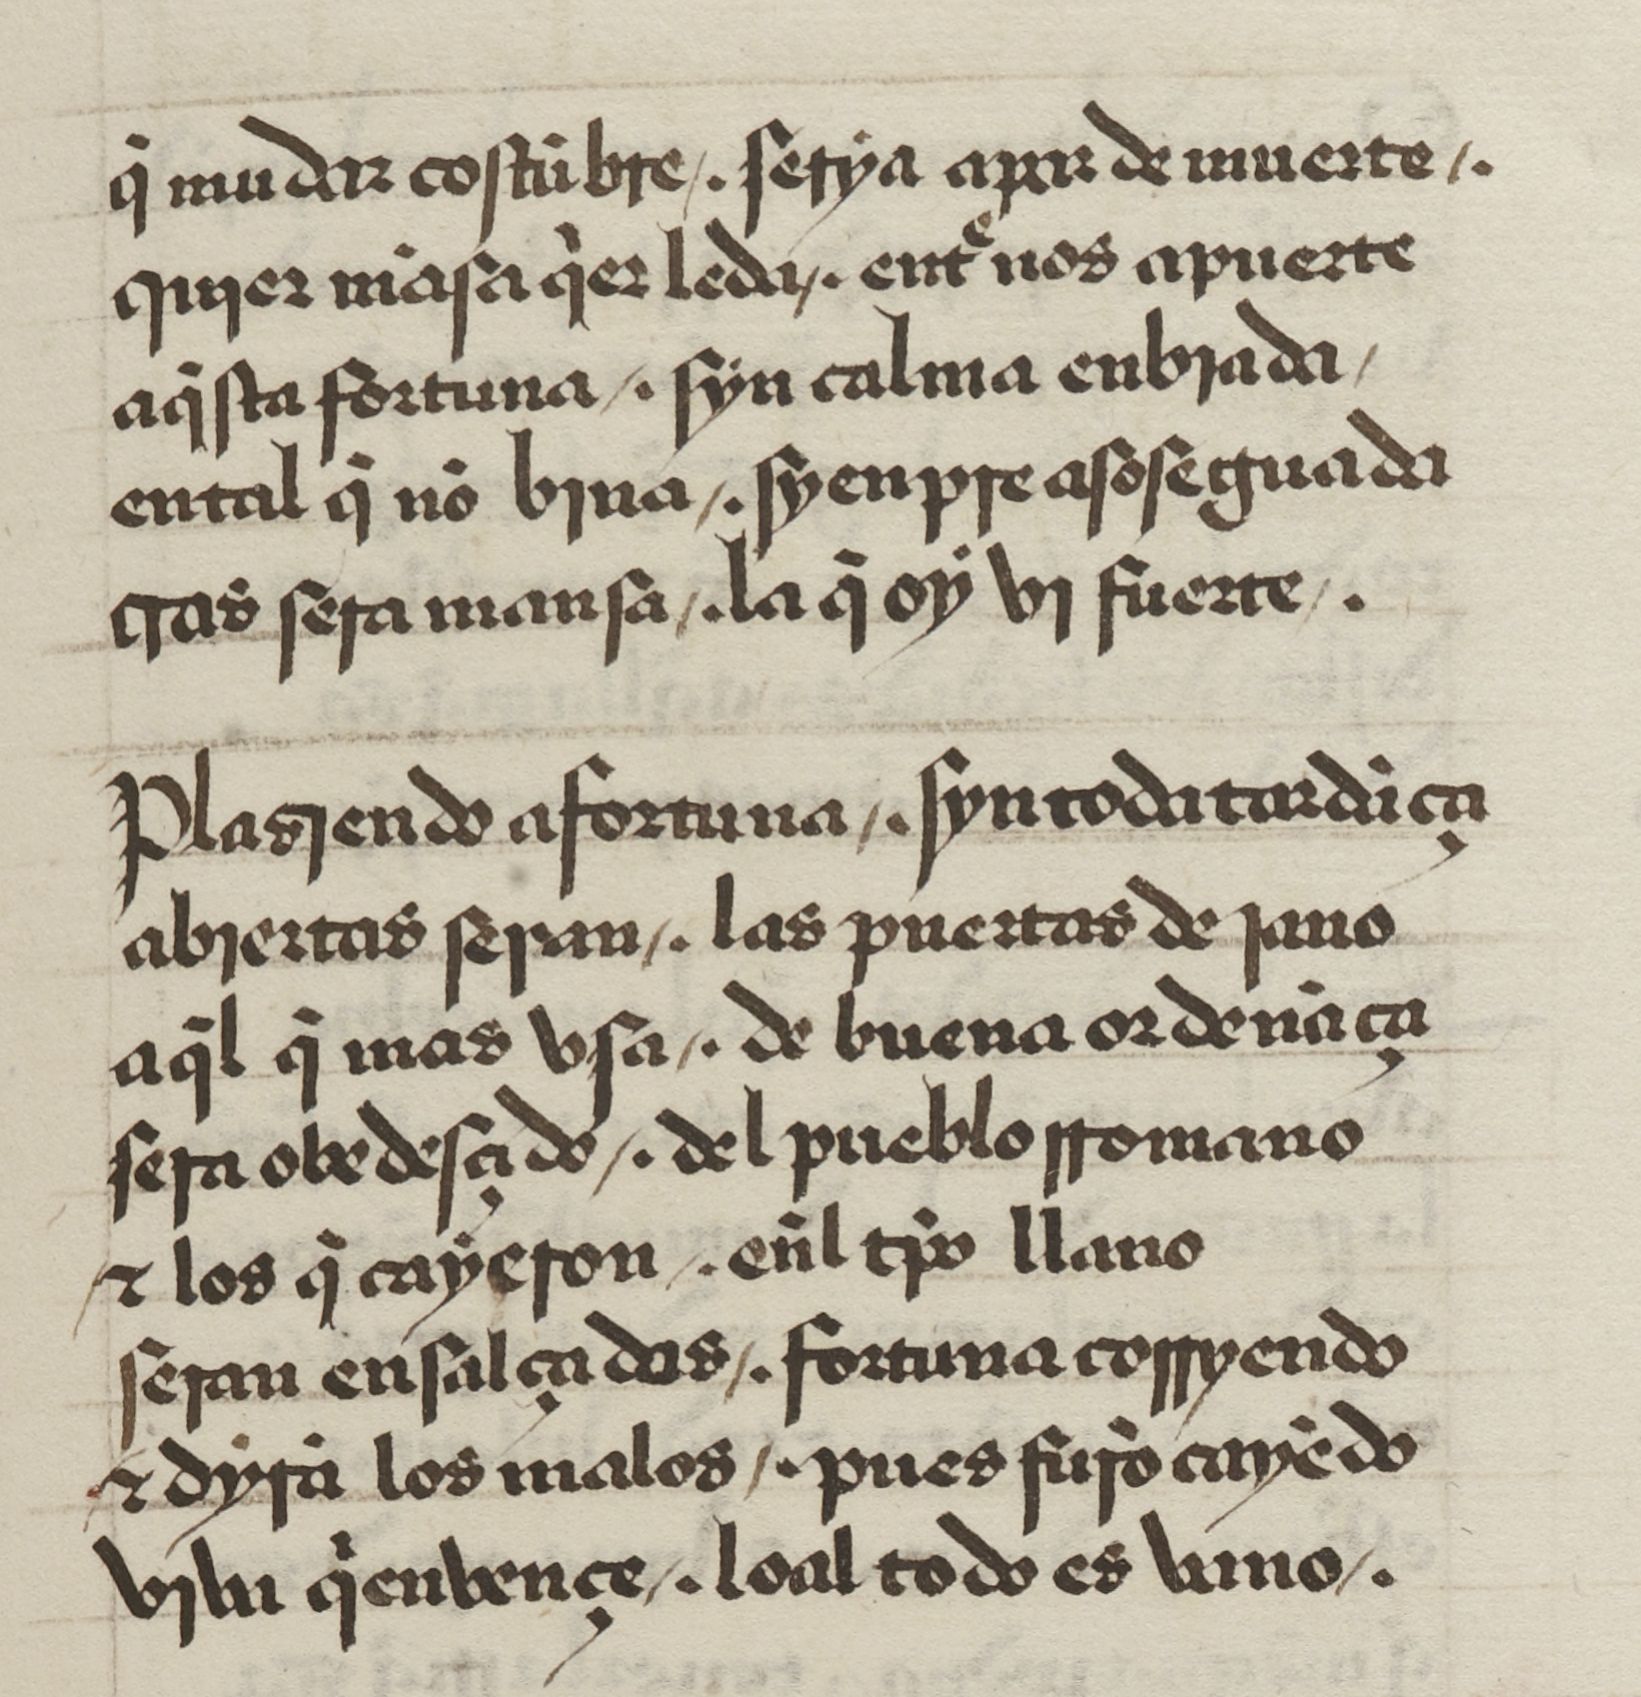 q̃ mudar costũbre /. serya apar de muerte /.
quier mãsa q̃er leda /. entᵉ nos apuerte
aq̃sta fortuna /. syn calma enbiada /
ental q̃ nõ bina /. syenpre asoseguada
Gas sera mansa /. la q̃ oy vi fuerte /.
Plasiendo afortuna /. syn toda tardãça
abiertas seran /. las puertas de iano
aq̃l q̃ mas vsa /. de buena ordenãça
sera obedesçido /. del pueblo rromano
⁊ los q̃ cayeron /. eñl tp̃o llano
seran ensalçados /. fortuna corryendo
⁊ dyrã los malos /. pues furõ cayẽdo
viba q̃en bençe /. lo al todo es vano /.